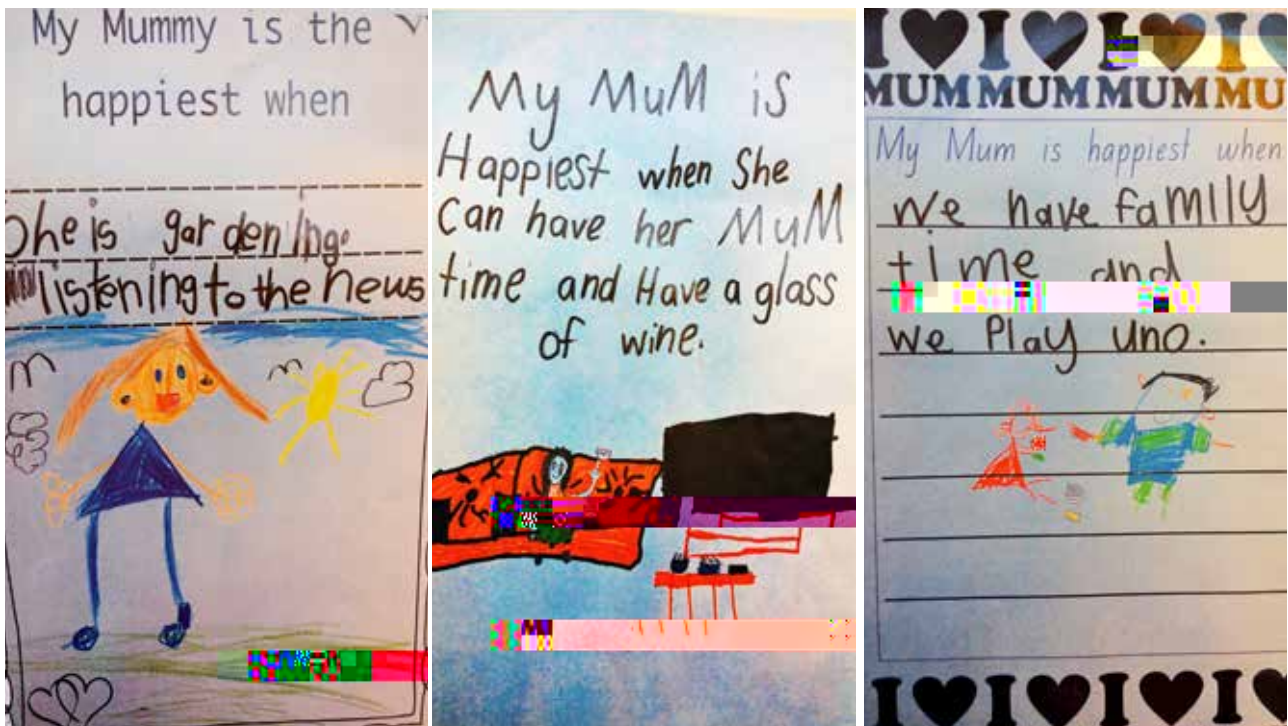 My Mummy is the
happiest when
She is gardening.
listening to the news
My MuM is
Happiest when She
Can have her MuM
time and Have a glass
of wine.
I ♥ I ♥ I ♥ I
MUM MUM MUM MU
My Mum is happiest when
we have family
time and
we Play uno.
I ♥ I ♥ I ♥ I ♥